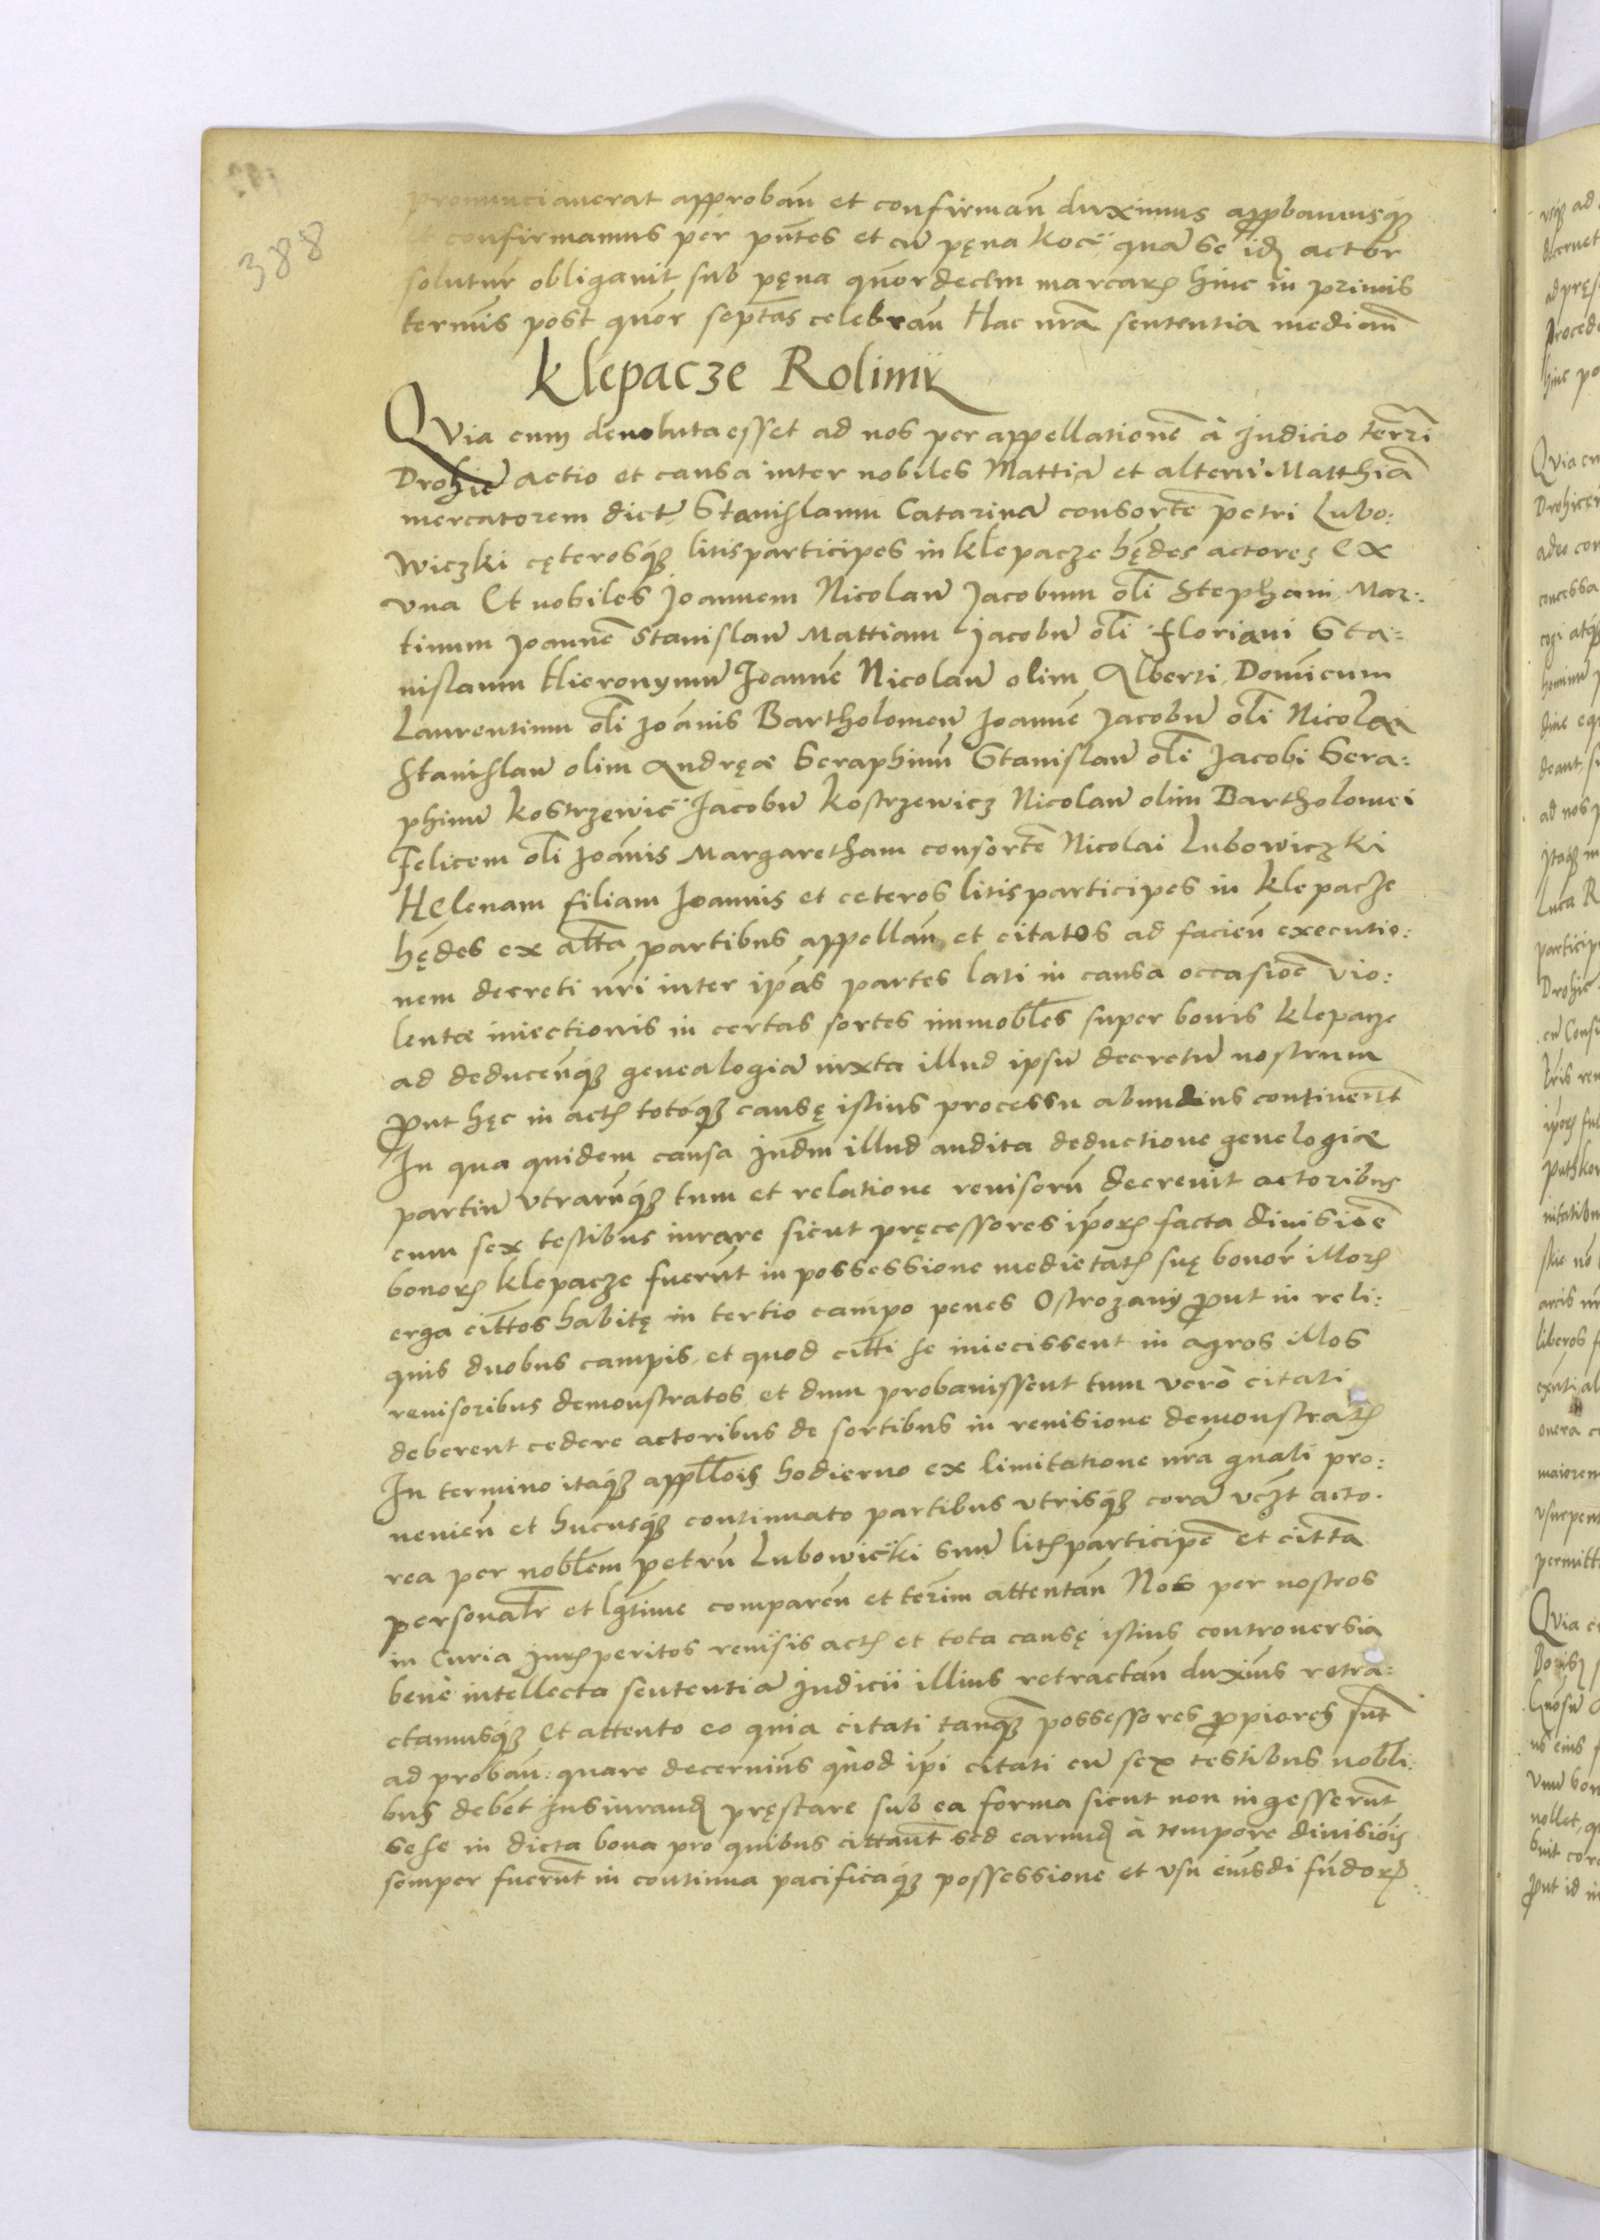 388
pronunciauerat approbān et confirmān duximus approbamusq
confirmamus per pn̄tes et cū pęna Kocÿ qua se idē actor
solutur̄ obligauit sub pęna quor decēm marcarum hinc in primis
terminis post quor septās celebrān Hac nrā sententia mediān
Klepacze Rolimÿ
Qvia cum deuoluta esset ad nos per appellationē à Judicio terri
Drohic̄ actio et causa inter nobiles Mattiā et alterū Matthiā
mercatorem dictū Stanislaum Catarinā consortē Petri Lubo:
wiczki cęterosq litisparticipes in Klepacze hędes actores Ex
vna Et nobiles Joannem Nicolaū Jacobum oli Stephani Mar:
tinum Joannē Stanislaū Mattiam Jacobū oli Floriani Sta:
nislaum Hieronymū Joannē Nicolaū olim Alberti Dominicum
Laurentium oli Joānis Bartholomeū Joannē Jacobū oli Nicolai
Stanislaū olim Andręæ Seraphinū Stanislaū oli Jacobi Sera:
phinū Kostrzewic̄ Jacobū Kostrzewicz Nicolaū olim Bartholomei
Felicem oli Joānis Margaretham consortē Nicolai Lubowiczki
Helenam filiam Joannis et ceteros litisparticipes in Klepacze
hędes ex altā partibus appellān et citatos ad faciēn executio:
nem decreti nri inter ipas partes lati in causa occasiōe vio:
lentæ iniectionis in certas sortes immobles super bonis Klepacze
ad deducenq genealogiā iuxta illud ipsū decretū nostrum
Prout hęc in actis totoq causę istius processu abundius continent
In qua quidem causa Judm illud audita deductione genelogiæ
partiū vtrarūq tum et relatione reuisorū decreuit actoribus
cum sex testibus iurare sicut pręcessores iporum facta diuisiōe
bonorum Klepacze fuerūt in possessione medietatis suę bonor illorum
erga cittos habitę in tertio campo penes Ostrozany prout in reli:
quis duobus campis et quod citti se iniecissent in agros illos
reuisoribus demonstratos et dum probauissent tum verò citati
deberent cedere actoribus de sortibus in reuisione demonstratis
In termino itaq applois hodierno ex limitatione nrā gnali pro:
ueniēn et hucusq continuato partibus vtrisq corā vt acto.
rea per noblem Petrū Lubowic̄ki suū litisparticipē et cittā
personalr et lgtime comparēn et termin attentān Nos per nostros
in Curia Jurisperitos reuisis actis et tota causę istius controuersia
benè intellecta sententiā Judicii illius retractān duximus retra:
ctamusq Et attento eo quia citati tanquam possessores propiores sunt
ad probān: quare decernimus quòd ipi citati cū sex testibus nobli:
bus debēt iusiurand pręstare sub ea forma sicut non ingesserunt
sese in dicta bona pro quibus cittantur sed earund à tempore diuisiōis
semper fuerunt in continua pacificaq possessione et vsu eiusdi fundorum